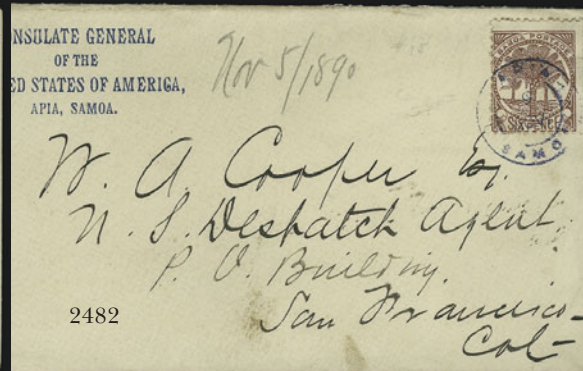 NSULATE GENERAL
OF THE
ED STATES OF AMERICA,
APIA, SAMOA.
Nov 5/1890
SAMOA POSTAGE
SIXPENCE
APIA
SAMO
W. A. Cooper Esq.
U. S. Despatch Agent
P. O. Building.
San Francisco -
Cal -
2482